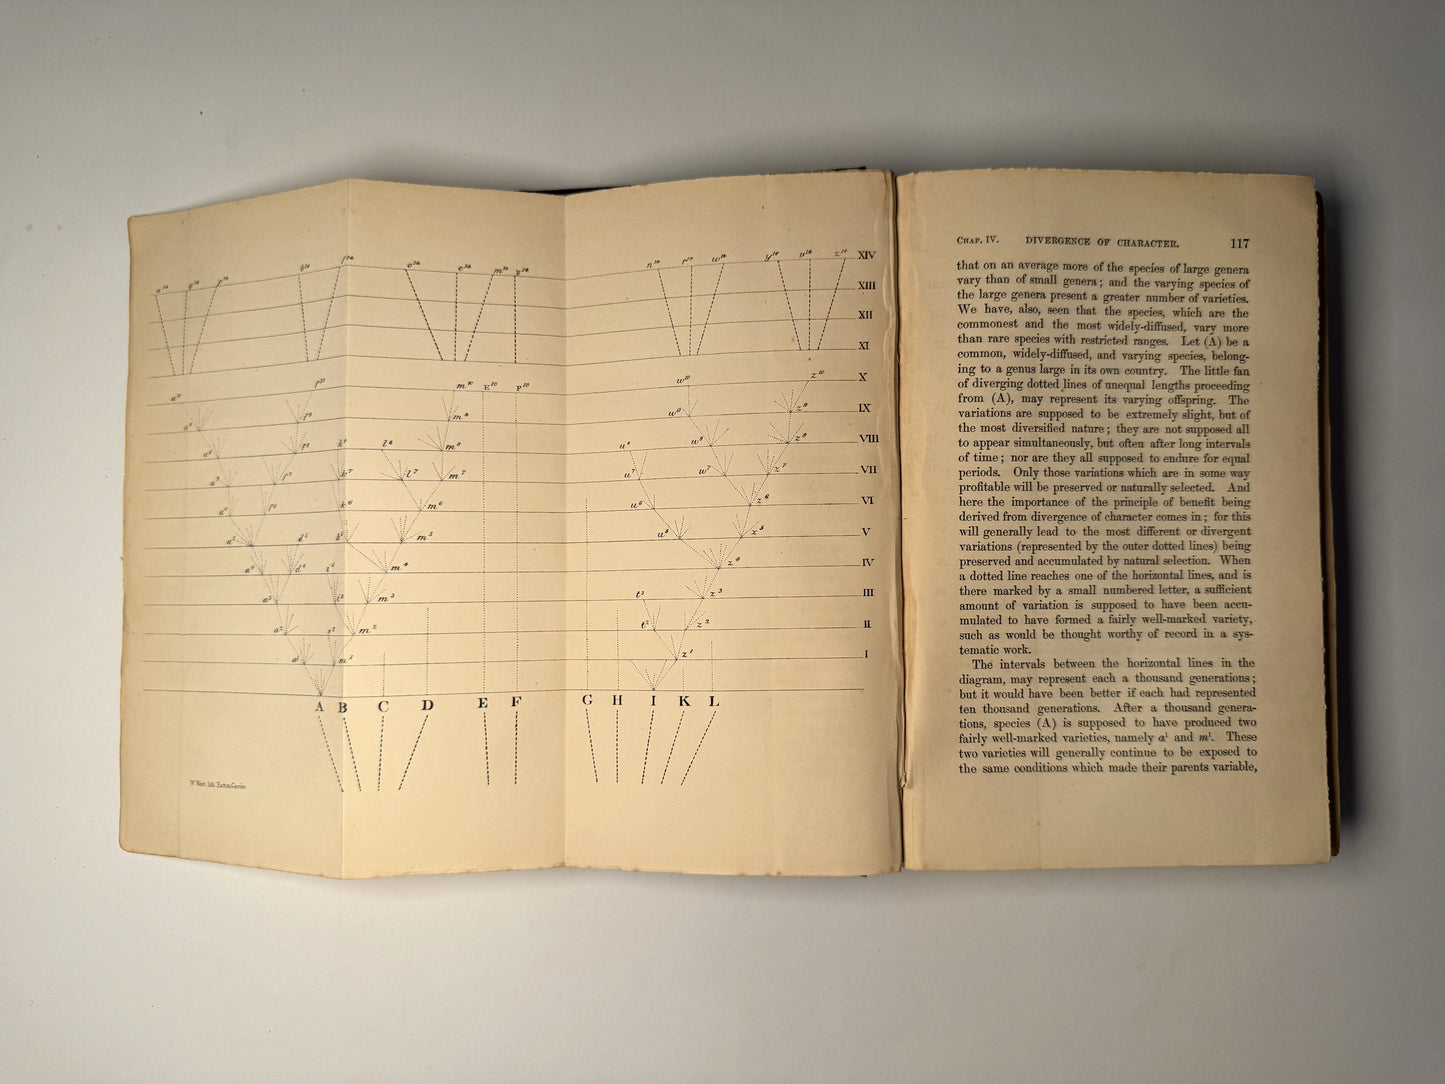 a14 q14 p14 b14 f14 o14 e14 m14 F14 n14 r14 w14 y14 v14 z14 XIV
XIII
XII
XI
a10 f10 m10 E10 F10 w10 z10 X
a9 f9 m9 w9 z9 IX
a8 f8 k8 l8 m8 u8 w8 z8 VIII
a7 f7 k7 l7 m7 u7 w7 z7 VII
a6 f6 k6 m6 u6 z6 VI
a5 d5 k5 m5 u5 z5 V
a4 d4 i4 m4 z4 IV
a3 i3 m3 t3 z3 III
a2 m2 t2 z2 II
a1 m1 z1 I
A B C D E F G H I K L
W. West lith. Hatton Garden
CHAP. IV. DIVERGENCE OF CHARACTER. 117
that on an average more of the species of large genera
vary than of small genera; and the varying species of
the large genera present a greater number of varieties.
We have, also, seen that the species, which are the
commonest and the most widely-diffused, vary more
than rare species with restricted ranges. Let (A) be a
common, widely-diffused, and varying species, belong-
ing to a genus large in its own country. The little fan
of diverging dotted lines of unequal lengths proceeding
from (A), may represent its varying offspring. The
variations are supposed to be extremely slight, but of
the most diversified nature; they are not supposed all
to appear simultaneously, but often after long intervals
of time; nor are they all supposed to endure for equal
periods. Only those variations which are in some way
profitable will be preserved or naturally selected. And
here the importance of the principle of benefit being
derived from divergence of character comes in; for this
will generally lead to the most different or divergent
variations (represented by the outer dotted lines) being
preserved and accumulated by natural selection. When
a dotted line reaches one of the horizontal lines, and is
there marked by a small numbered letter, a sufficient
amount of variation is supposed to have been accu-
mulated to have formed a fairly well-marked variety,
such as would be thought worthy of record in a sys-
tematic work.
The intervals between the horizontal lines in the
diagram, may represent each a thousand generations;
but it would have been better if each had represented
ten thousand generations. After a thousand genera-
tions, species (A) is supposed to have produced two
fairly well-marked varieties, namely a1 and m1. These
two varieties will generally continue to be exposed to
the same conditions which made their parents variable,